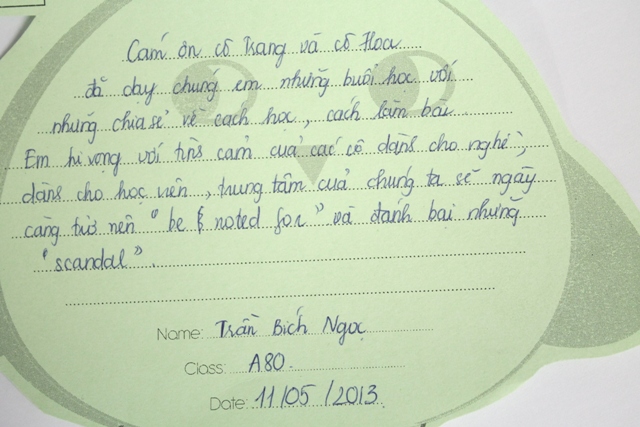 Cảm ơn cô Trang và cô Hoa
đã dạy chúng em những buổi học với
những chia sẻ về cách học, cách làm bài.
Em hi vọng với tình cảm của các cô dành cho nghề,
dành cho học viên, trung tâm của chúng ta sẽ ngày
càng trở nên "be noted for" và đánh bại những
"scandal".
Name: Trần Bích Ngọc
Class: A80.
Date: 11/05/2013